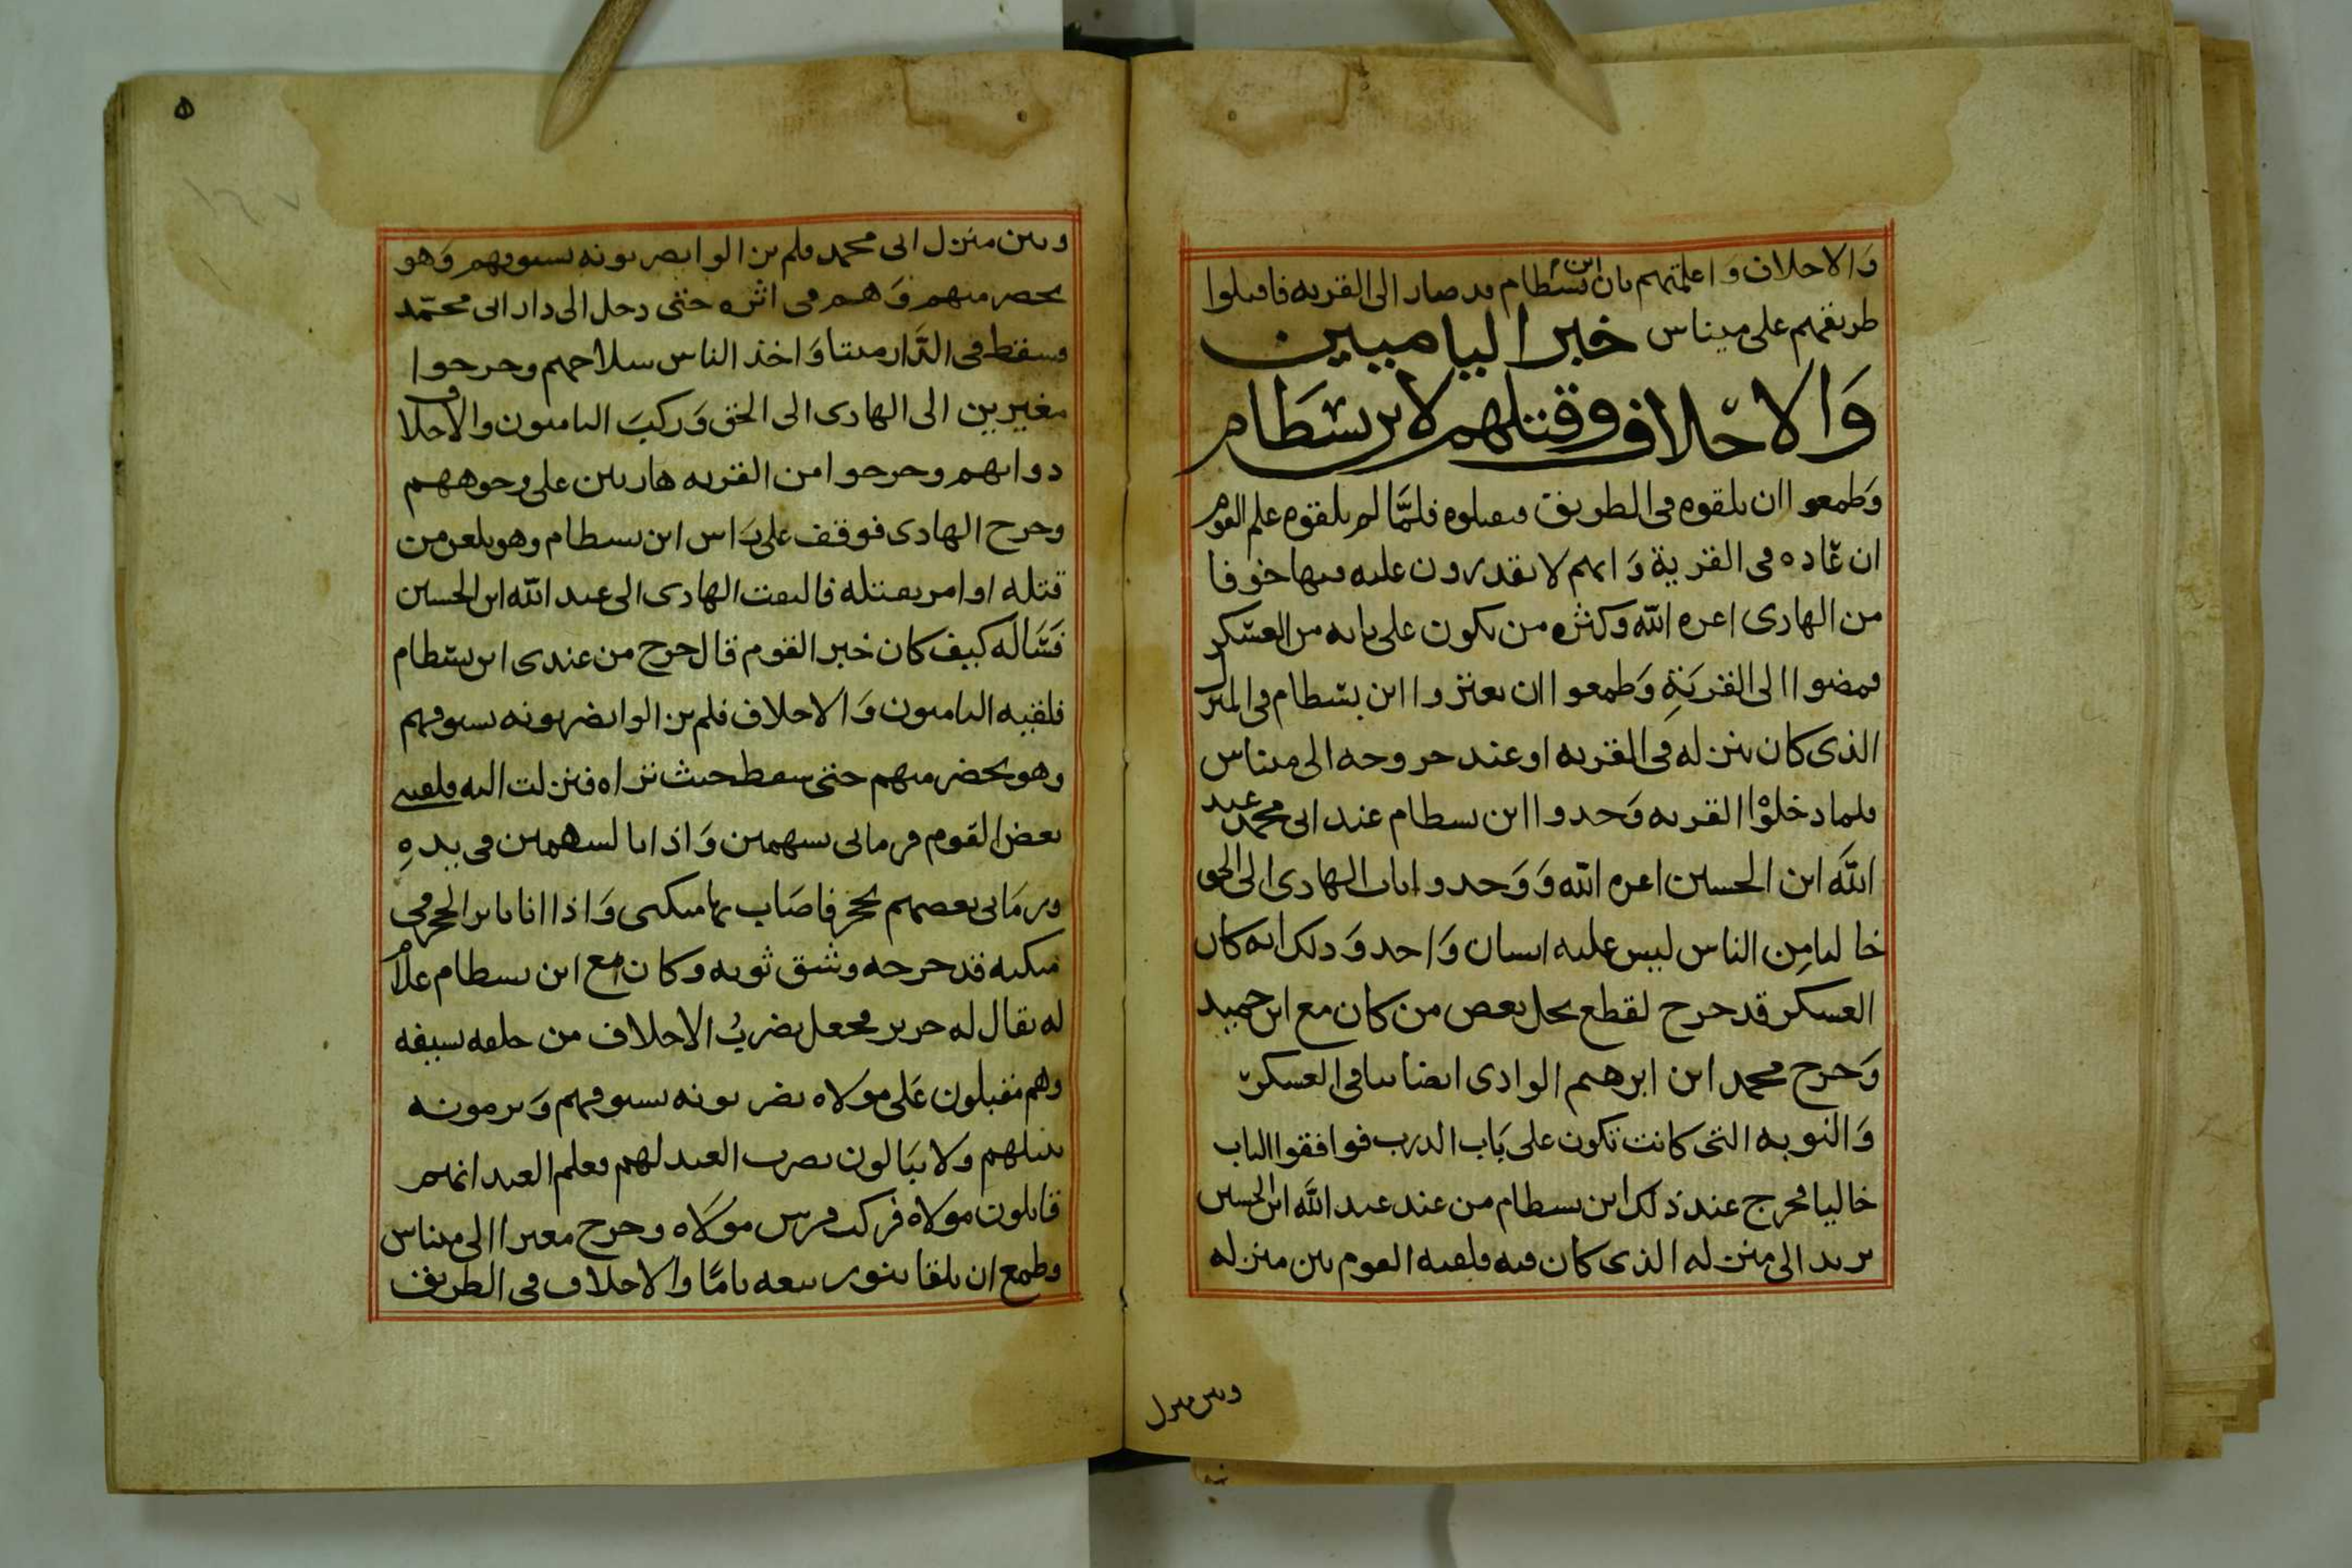 والاحلاف واعلمتهم بان ابن بسطام قد صار الى القريه فاقبلوا
طريقهم على ميناس خبر الياميين
والاحلاف وقتلهم لابن بسطام
وطمعوا ان يلقوه في الطريق فيقتلوه فلمّا لم يلقوه علم القوم
ان غاده في القرية وانهم لا يقدرون عليه فيها خوفا
من الهادى اعزه الله وكثره من يكون على بابه من العسكر
فمضوا الى القريةِ وطمعوا ان يعتروا ابن بسطام في المنزل
الذى كان ينزله في القريه او عند خروجه الى ميناس
فلما دخلوْا القريه وَجدوا ابن بسطام عند ابى محمد عبد
الله ابن الحسين اعزه الله وَوَجدوا باب الهادى الى الحق
خاليا مِن الناس ليس عليه انسان وَاحد وَذلك انه كان
العسكر قد خرج لقطع نخل بعض من كان مع ابن حميد
وَخرج محمد ابن ابرهيم الوادى ايضا ببافى العسكر
وَالنوبه التى كانت تكون على بَاب الدرب فوافقوا الباب
خاليا فخرج عند ذلك ابن بسطام من عند عبد الله ابن الحسين
يريد الى منزله الذى كان فيه فلقيه القوم بين منزله
وبين منزل
وبين منزل ابى محمد فلم يزالوا يضربونه بسيوفهم وَهو
يحضر منهم وَهم في اثره حتى دخل الى دار ابى محمّد
فسقط في الدّار ميتا وَاخذ الناس سلاحهم وخرجوا
مغيرين الى الهادى الى الحق وَركبَ الياميون والاحلاف
دوابهم وخرجوا من القريه هاربين على وجوههم
وخرج الهادى فوقف على رَاس ابن بسطام وهو يلعن من
قتله او امر بقتله فالتفت الهادى الى عبد الله ابن الحسين
فسَاله كيف كان خبر القوم قال خرج من عندى ابن بسطام
فلقيه الياميون وَالاحلاف فلم يزالوا يضربونه بسيوفهم
وهو يحضر منهم حتى سقط حيث تراه فنزلت اليه فلقينى
بعض القوم فرمانى بسهمين وَاذا بالسهمين في يدهِ
ورمَانى بعضهم بحجر فاصَاب بها منكبى وَاذا انا باثر الحجر في
منكبه قد جرحه وشق ثوبه وكان مع ابن بسطام غلام
له يقال له حرير فجعل يضربُ الاحلاف من خلفه بسيفه
وهم مقبلون عَلى مولاه يضربونه بسيوفهم وَيرمونه
بنبلهم ولا يبَالون بضرب العبد لهم فعلم العبد انهم
قاتلون مولاه فركب فرس مولَاه وخرج مغيرا الى ميناس
وطمع ان يلقا بنو ربيعه يامًا والاحلاف في الطريق